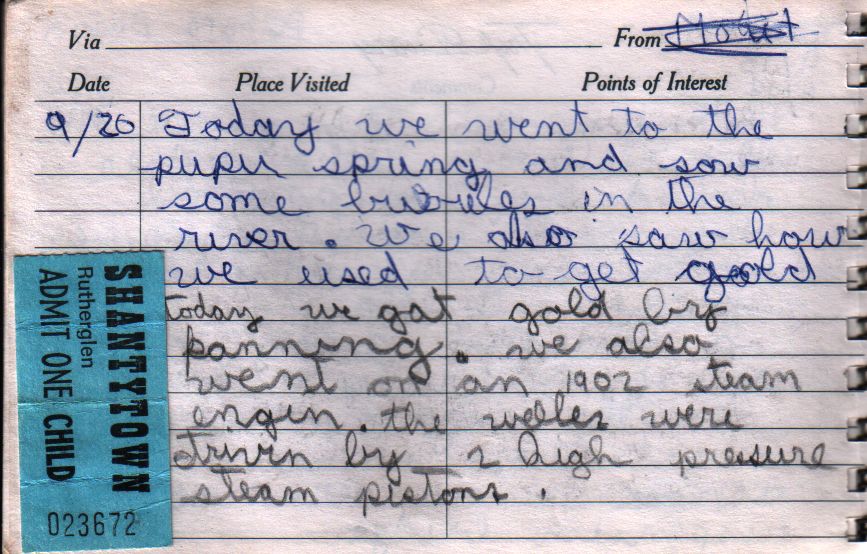 Via From
Date Place Visited Points of Interest
9/20 Today we went to the
pupu spring and sow
some bubules in the
river. We also saw how
we used to get gold
today we gat gold by
panning. we also
went on an 1902 steam
engin. the welles were
drivin by 2 high pressure
steam pistons.
SHANTYTOWN
Rutherglen
ADMIT ONE CHILD
023672